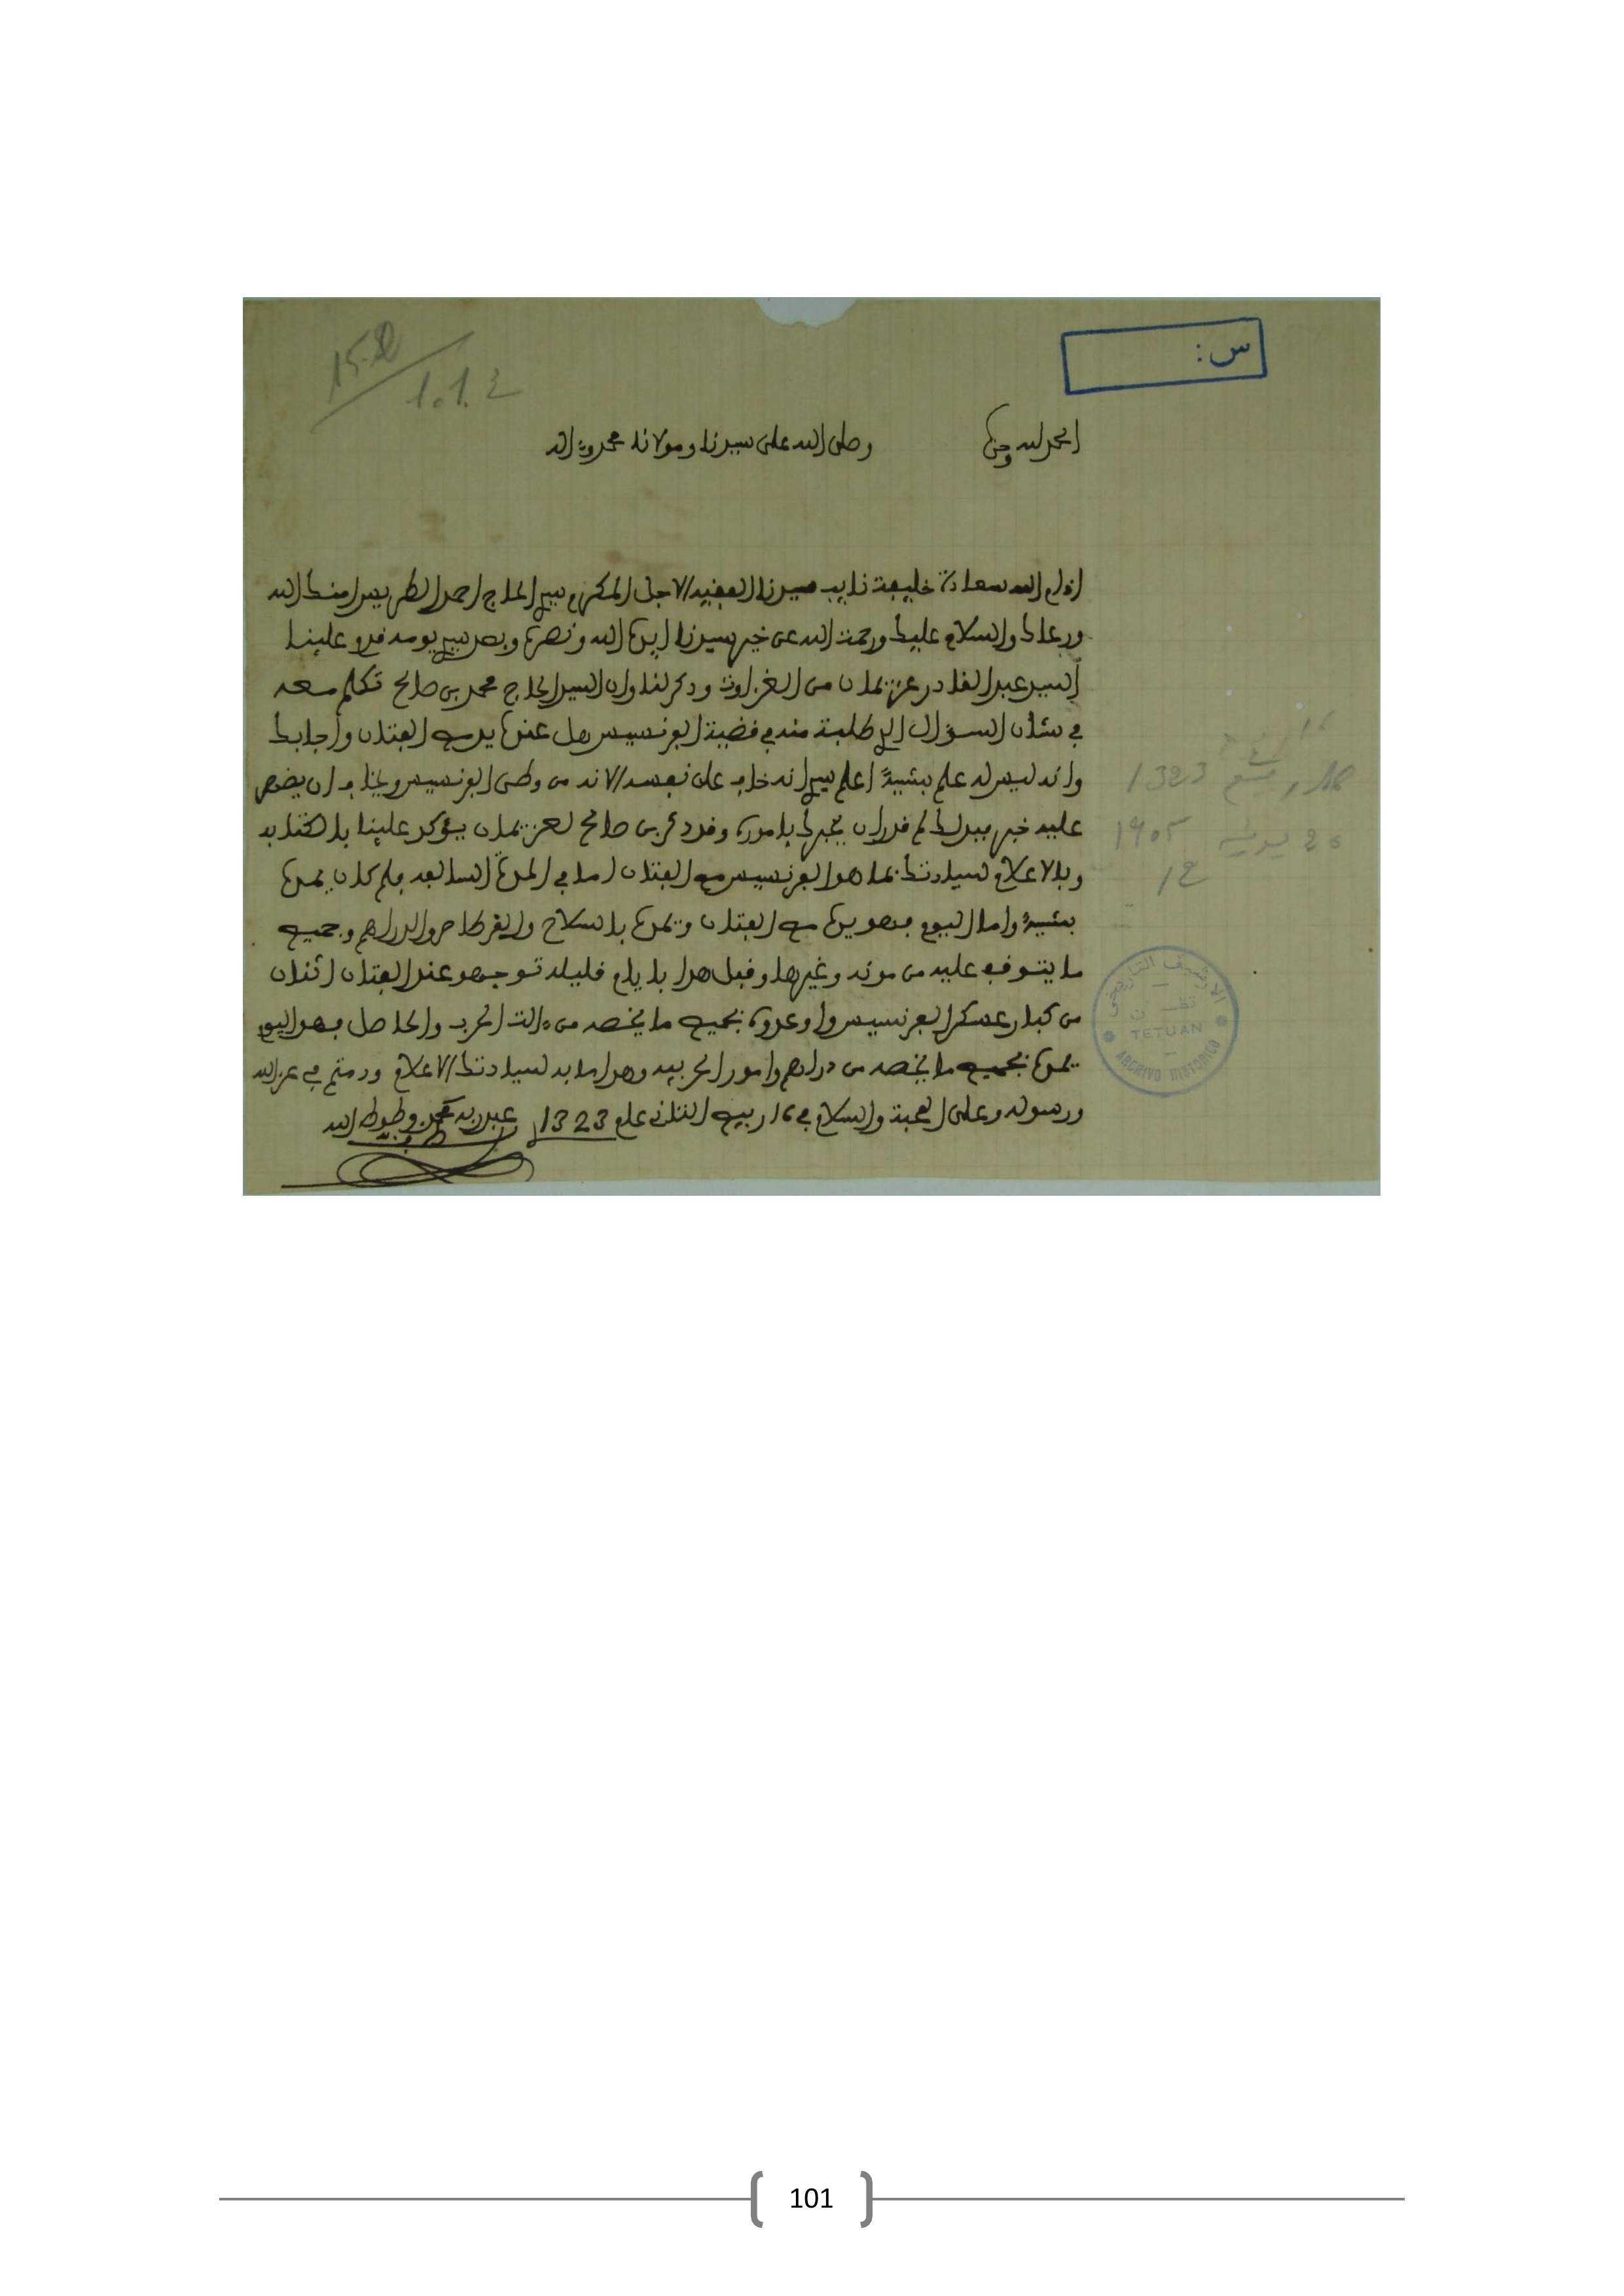 س:
الحمد لله وحده
وصلى الله على سيدنا ومولانا محمد وءاله
ادام الله سعادة خليفة نايب سيدنا الفقيه الاجل المكرم سيدي الحاج احمد الطريس امنك الله
ورعاك والسلام عليك ورحمت الله عن خير سيدنا ايده الله ونصره وبعد سيدي يومه قدم علينا
السيد عبد القادر عزيمان من الغزاوت ودكر لنا وان السيد الحاج محمد بن صالح تكلم معه
في شان السؤال الدي طلبة منه في قضية الفرنسيس هل عنده يد مع الفتان واجابك
وانه ليس له علم بشيئ اعلم سيدي انه خاف على نفسه لانه من وطن الفرنسيس ويخاف ان
عليه خبر لم قدر ان يخبرك باموره وقد دكر بن صالح لعزيمان يؤكد علينا بالكتابه
وبالاعلام لسيادتك بما هو الفرنسيس مع الفتان اما في المدة السابقه فلم كان يمده
بشيئ واما اليوم فهو يده مع الفتان ويمده بالسلاح والقرطاص والدراهم وجميع
ما يتوقف عليه من مونه وغيرها وقبل هدا بايام قليله توجهو عند الفتان اثنان
من كبار عسكر الفرنسيس واوعدوه بجميع ما يخصه من ءالت الحرب والحاصل فهو اليوم
يمده بجميع ما يخصه من دراهم وامور الحربيه وهدا ما به لسيادتك الاعلام ودمتم في عز الله
ورسوله وعلى المحبة والسلام في 16 ربيع الثاني عام 1323 عبد ربه
16 ربيع 1323
20 يونيه 1905
الارشيف التاريخي
تطـــوان
TETUAN
ARCHIVO HISTORICO
101